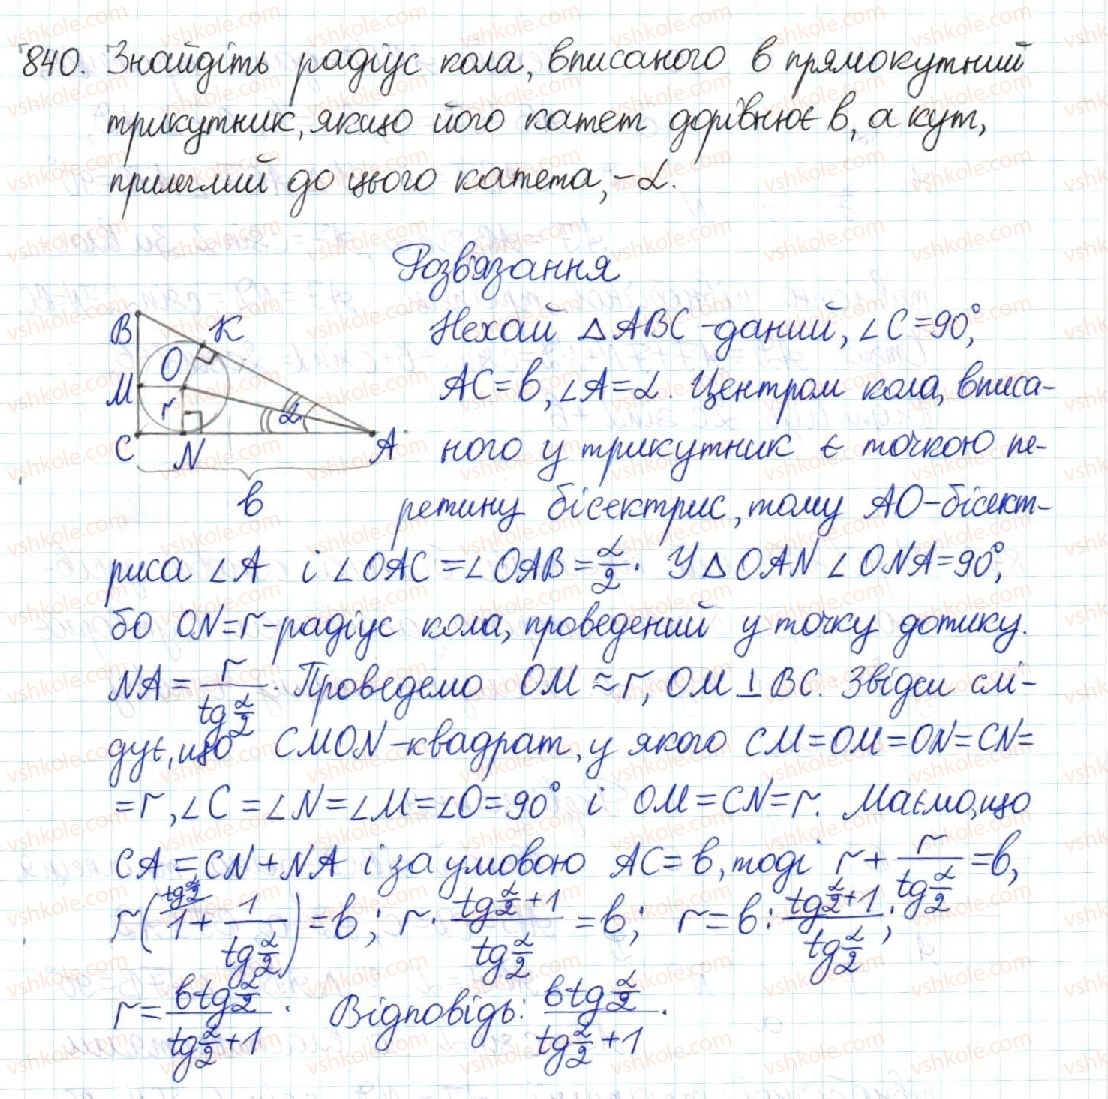 840. Знайдіть радіус кола, вписаного в прямокутний
трикутник, якщо його катет дорівнює b, а кут,
прилеглий до цього катета, - α.
Розв'язання
Нехай △ABC - даний, ∠C = 90°,
AC = b, ∠A = α. Центром кола, вписа-
ного у трикутник є точкою пе-
ретину бісектрис, тому AO - бісект-
риса ∠A і ∠OAC = ∠OAB = α/2. У △OAN ∠ONA = 90°,
бо ON = r - радіус кола, проведений у точку дотику.
NA = r/(tg α/2). Проведемо OM ≈ r, OM ⊥ BC. Звідси слі-
дує, що CMON - квадрат, у якого CM = OM = ON = CN =
= r, ∠C = ∠N = ∠M = ∠O = 90° і OM = CN = r. Маємо, що
CA = CN + NA і за умовою AC = b, тоді r + r/(tg α/2) = b,
r(1 + 1/(tg α/2)) = b; r · (tg α/2 + 1)/(tg α/2) = b; r = b : (tg α/2 + 1)/(tg α/2);
r = (b tg α/2)/(tg α/2 + 1). Відповідь: (b tg α/2)/(tg α/2 + 1).
B
K
O
M
r
α
C
N
A
b
vshkole.com